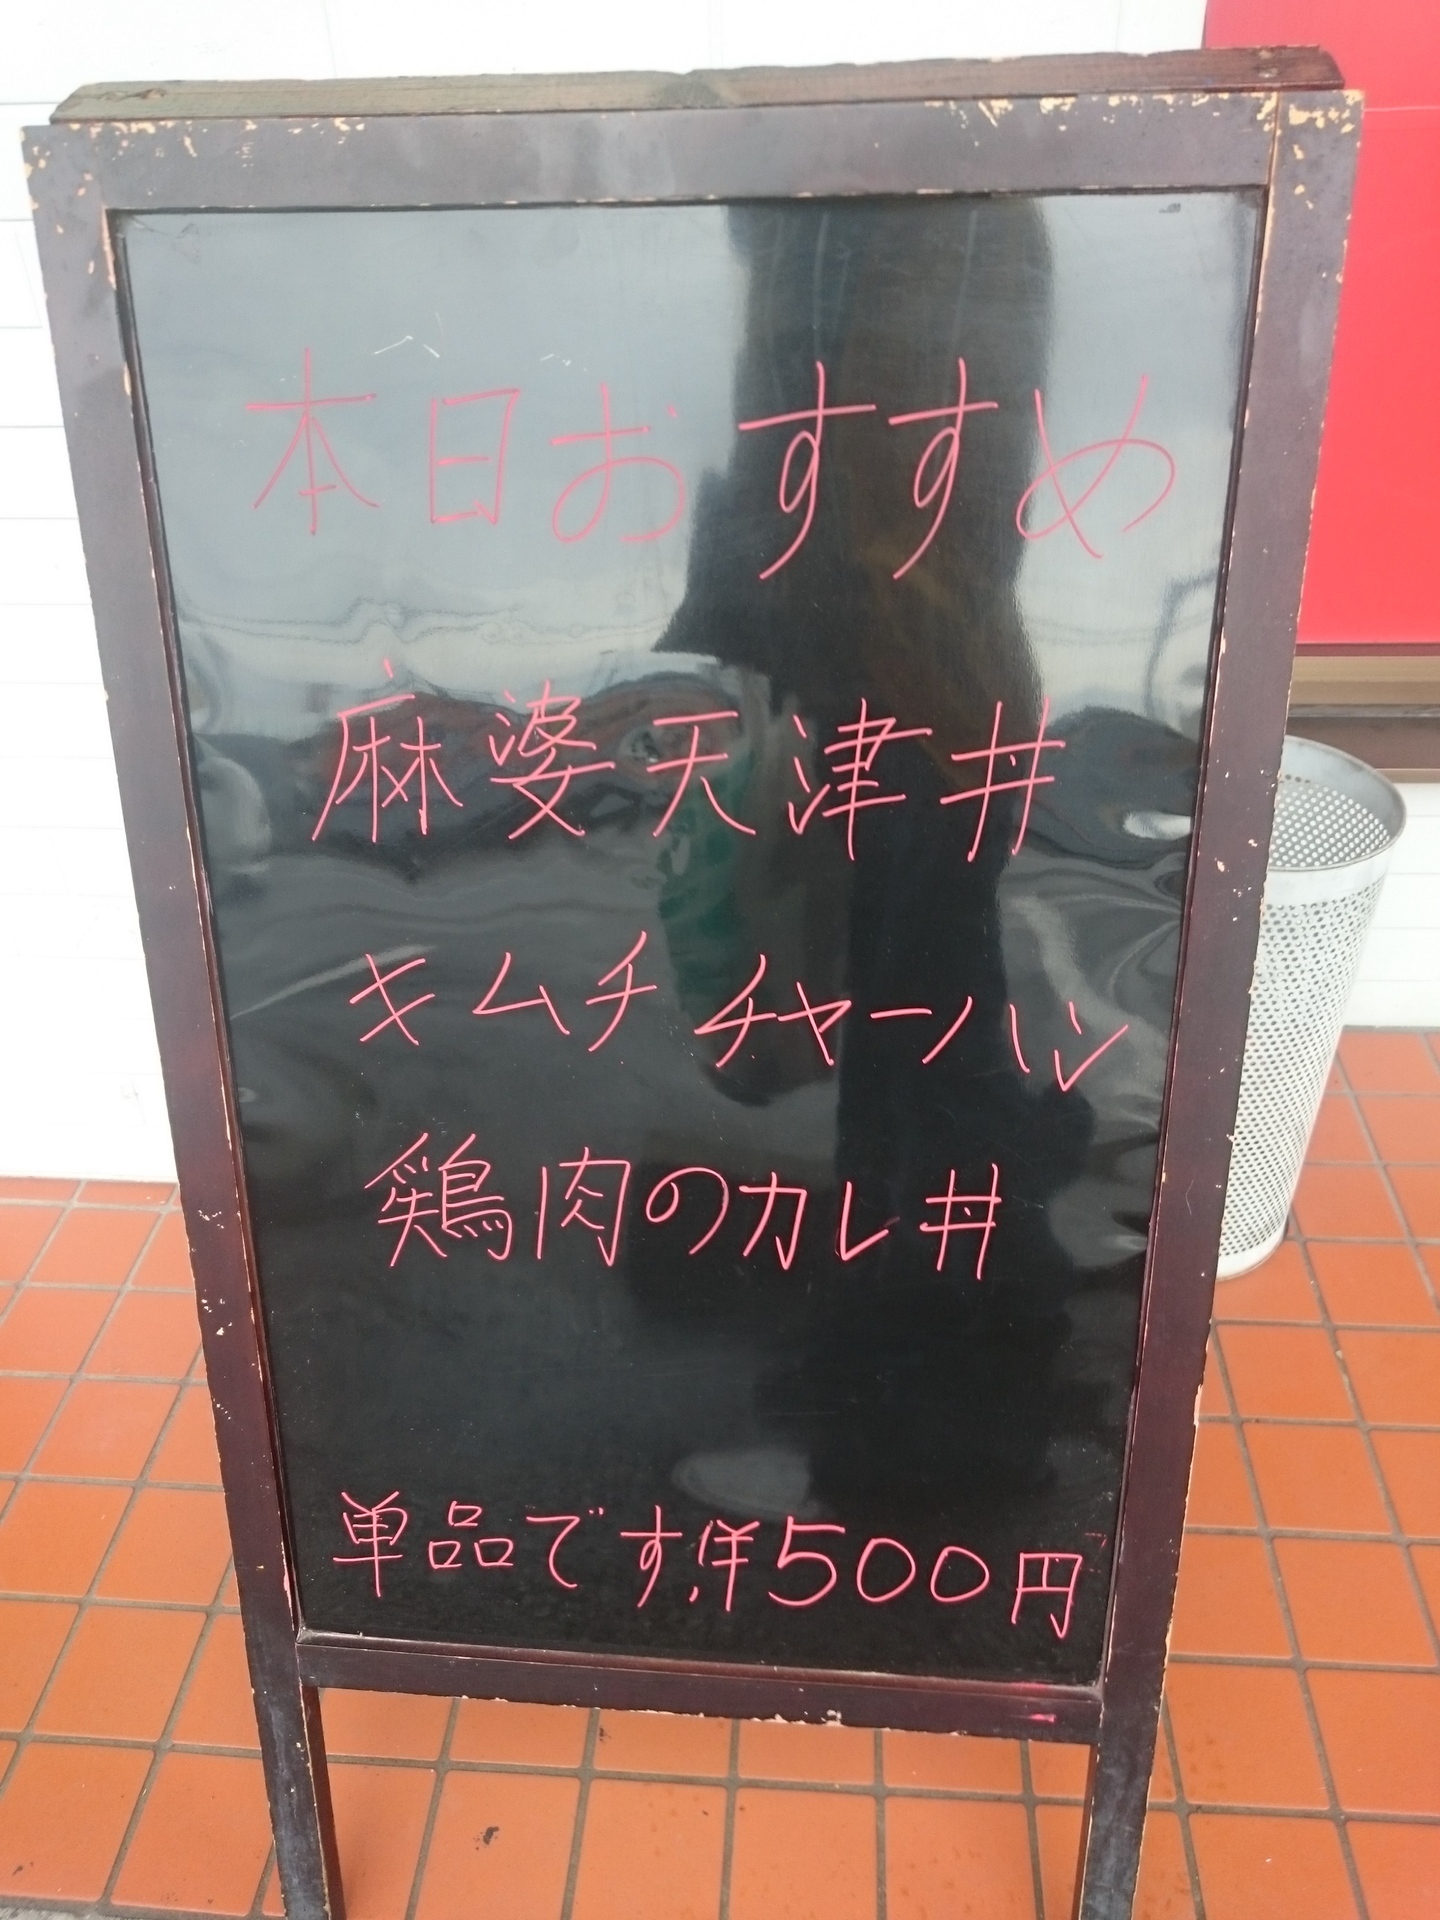 本日おすすめ
麻婆天津丼
キムチチャーハン
鶏肉のカレ丼
単品です。洋500円